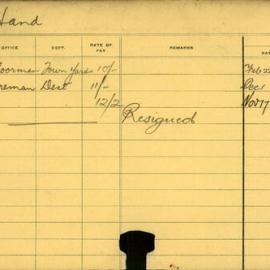 Hand
OFFICE DEPT. DATE OF PAY REMARKS
Foreman Town Yard 10/-
Foreman Dest 11/- Dec
12/2 Nov 17
Resigned